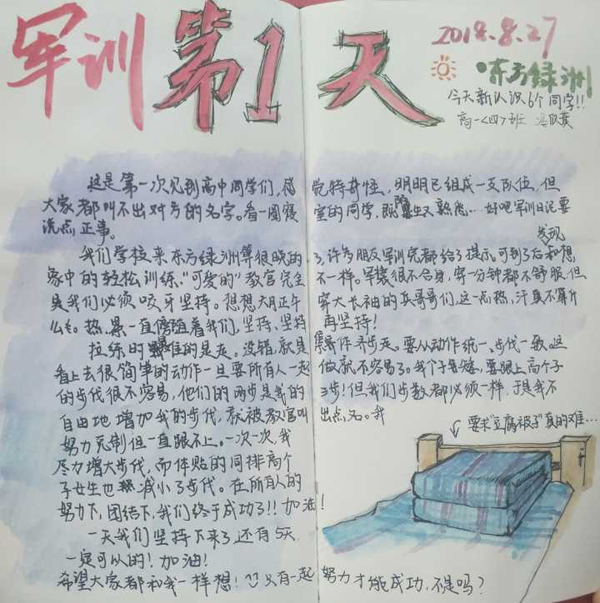 军训第1天
2018.8.27
东方绿洲
今天新认识6个同学!!
高一<四>班
这是第一次见到高中同学们,感觉特奇怪,明明已组成一支队伍,但
大家都叫不出对方的名字。看一圈寝室的同学,既陌生又熟悉…好吧军训日记要
说点正事。
我们学校来东方绿洲算很晚的了,许多朋友军训完都给了提示。可到了后发现和想
象中的轻松训练、"可爱的"教官完全不一样。军装很不合身,穿一分钟都不舒服,但
是我们必须咬牙坚持。想想大月正午穿大长袖的兵哥哥们,这一点热,汗真不算什
么。热、累一直伴随着我们,坚持、坚持再坚持!
拉练时最难的是走。没错,就是齐步走。要从动作统一、步伐一致这
看上去很简单的动作一旦要所有人一起做就不容易了。我个子Ten矮,要跟上高个子
的步伐很不容易,他们的两步是我的3步!但我们步数都必须一样,于是我不
自由地增加我的步伐,就被教官叫出点名。我
努力克制但一直跟不上。一次一次,我
尽力增大步伐,而体贴的同排高个
子女生也减小了步伐。在所有人的
努力下,团结下,我们终于成功了!!加油!
一天我们坚持下来了还有5天
一定可以的!加油!
希望大家都和我一样想!只有一起努力才能成功,不是吗?
要求"豆腐被子"真的难…